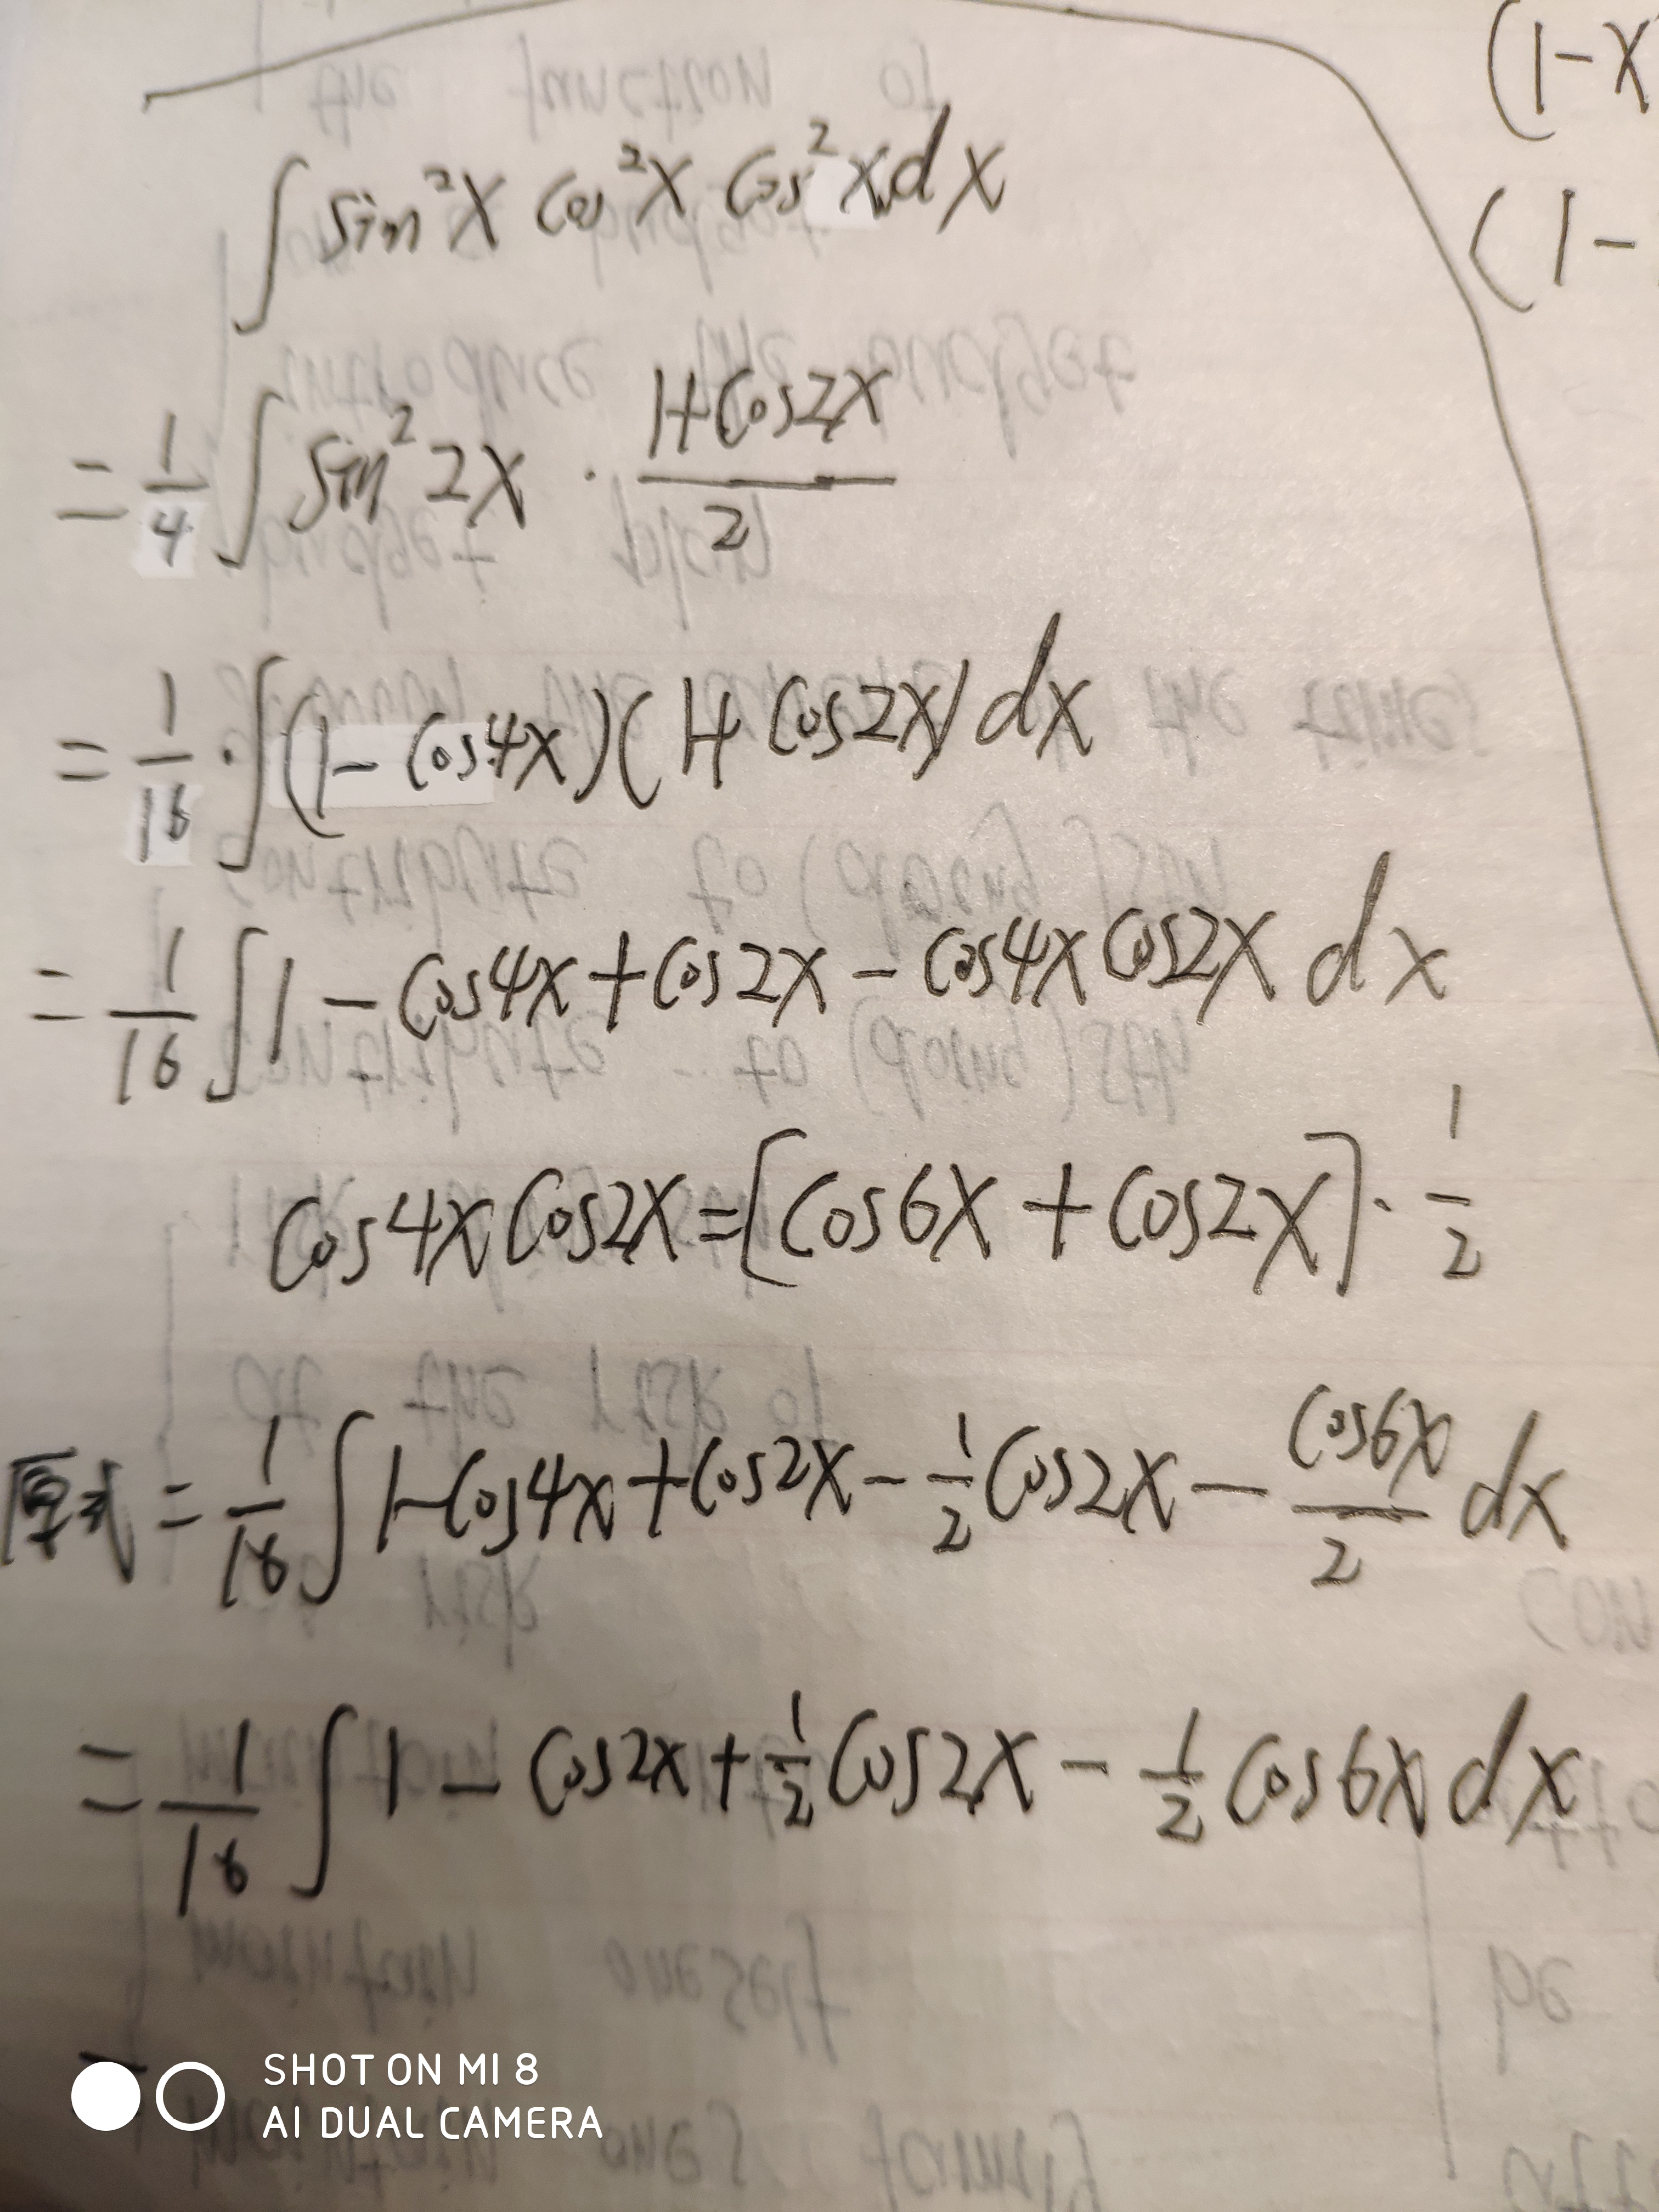 (1-x
∫ sin²x cos²x cos²x dx
(1-
= 1/4 ∫ sin²2x · (1+cos2x)/2
= 1/16 · ∫(1-cos4x)(1+cos2x)dx
= 1/16 ∫1-cos4x+cos2x-cos4xcos2x dx
cos4xcos2x=[cos6x+cos2x]·1/2
原式 = 1/16 ∫1-cos4x+cos2x-1/2cos2x-cos6x/2 dx
= 1/16 ∫1-cos2x+1/2cos2x-1/2cos6xdx
SHOT ON MI 8
AI DUAL CAMERA